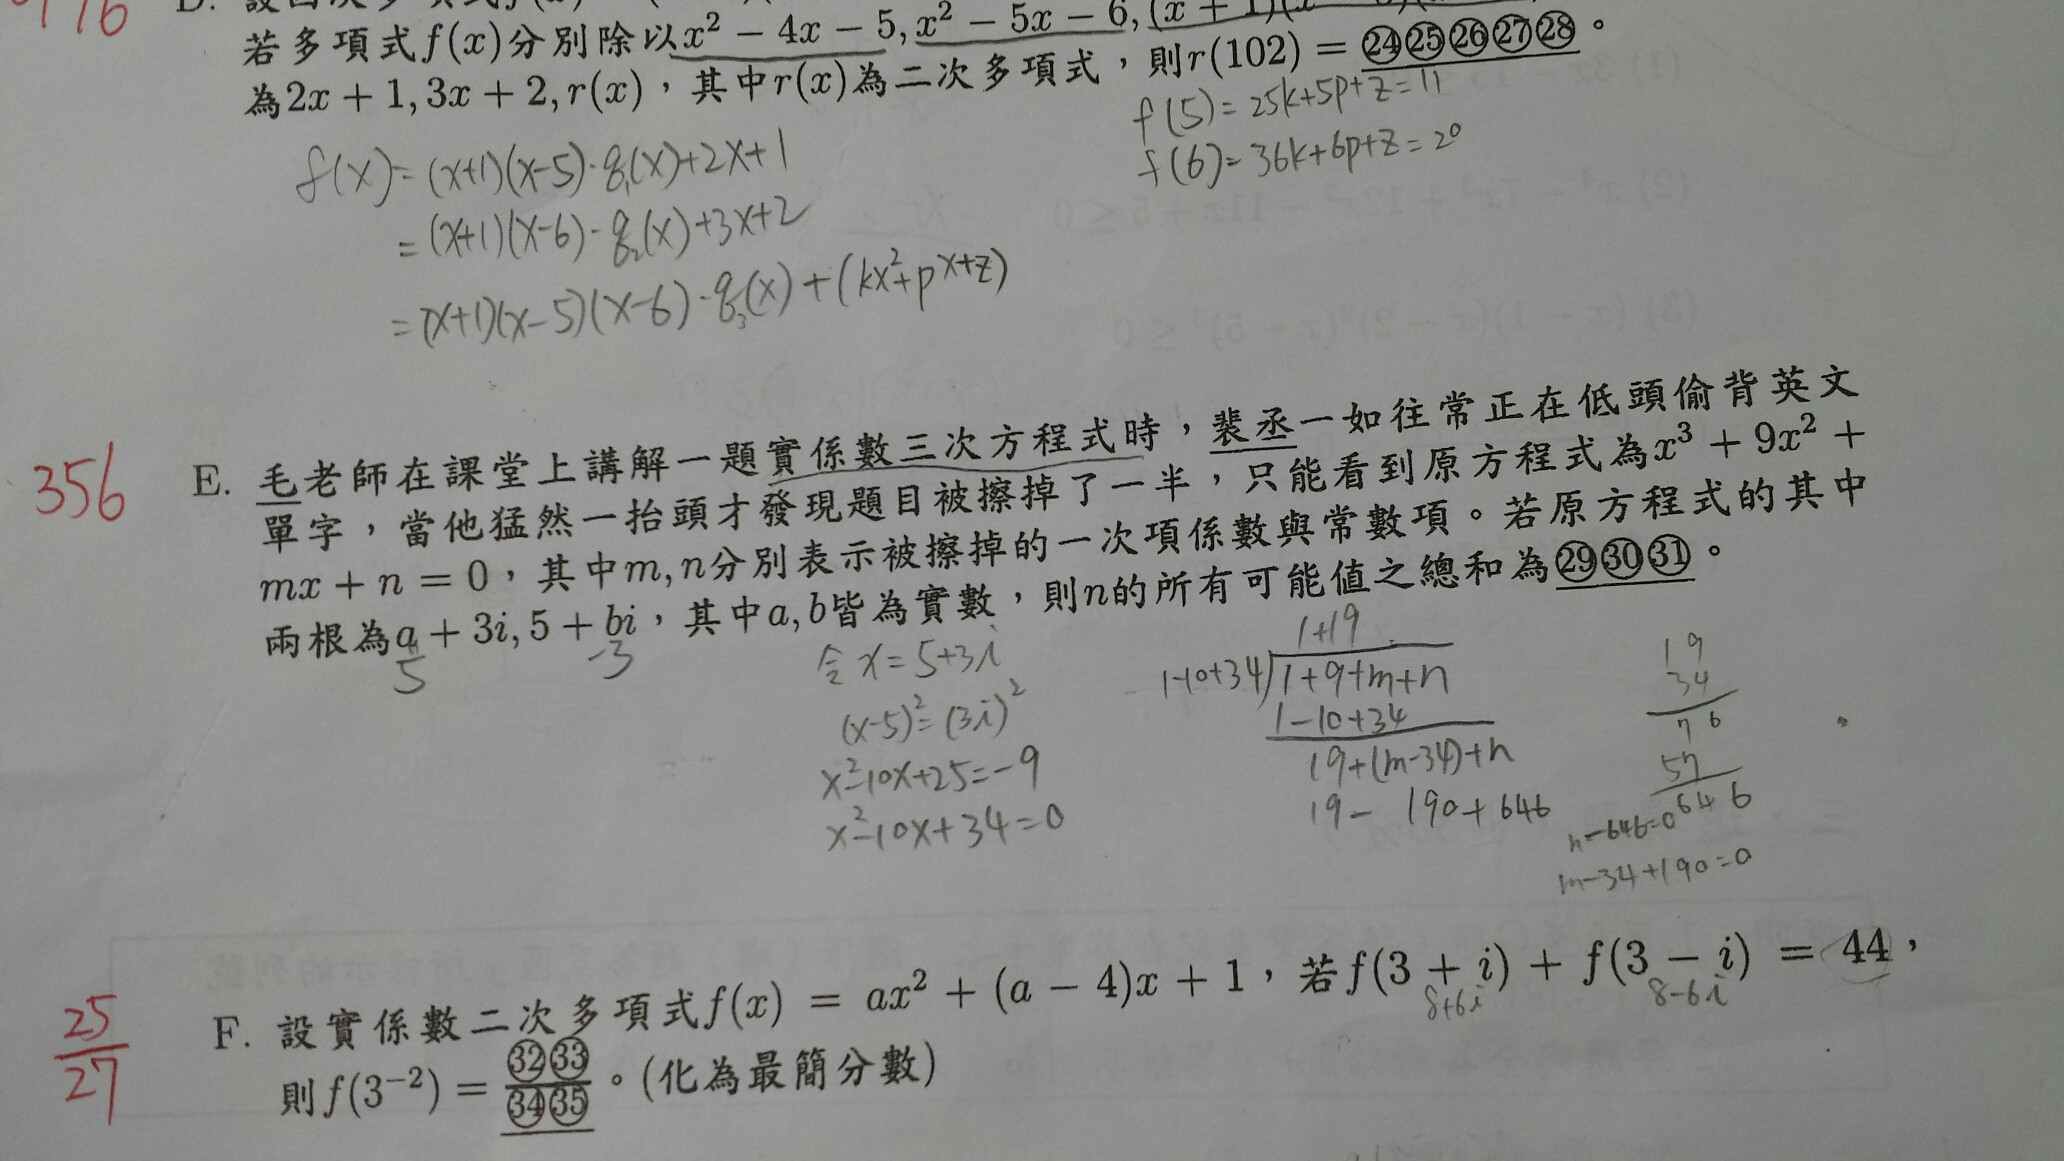 若多項式f(x)分別除以x² − 4x − 5, x² − 5x − 6, (x + 1)
為2x + 1, 3x + 2, r(x)，其中r(x)為二次多項式，則r(102) = ㉔㉕㉖㉗㉘。
f(5)=25k+5p+z=11
f(6)=36k+6p+z=20
f(x)=(x+1)(x-5)·q₁(x)+2x+1
=(x+1)(x-6)·q₂(x)+3x+2
=(x+1)(x-5)(x-6)·q₃(x)+(kx²+px+z)
356
E. 毛老師在課堂上講解一題實係數三次方程式時，裴丞一如往常正在低頭偷背英文
單字，當他猛然一抬頭才發現題目被擦掉了一半，只能看到原方程式為x³ + 9x² +
mx + n = 0，其中m, n分別表示被擦掉的一次項係數與常數項。若原方程式的其中
兩根為a + 3i, 5 + bi，其中a, b皆為實數，則n的所有可能值之總和為㉙㉚㉛。
5
-3
令 x=5+3i
(x-5)²=(3i)²
x²-10x+25=-9
x²-10x+34=0
1+19
1-10+34 1+9+m+n
1-10+34
19+(m-34)+n
19- 190+646
19
34
76
57
646
n-646=0
m-34+190=0
25
27
F. 設實係數二次多項式f(x) = ax² + (a − 4)x + 1，若f(3 + i) + f(3 − i) = 44，
8+6i
8-6i
則f(3⁻²) = ㉜㉝
㉞㉟
。(化為最簡分數)